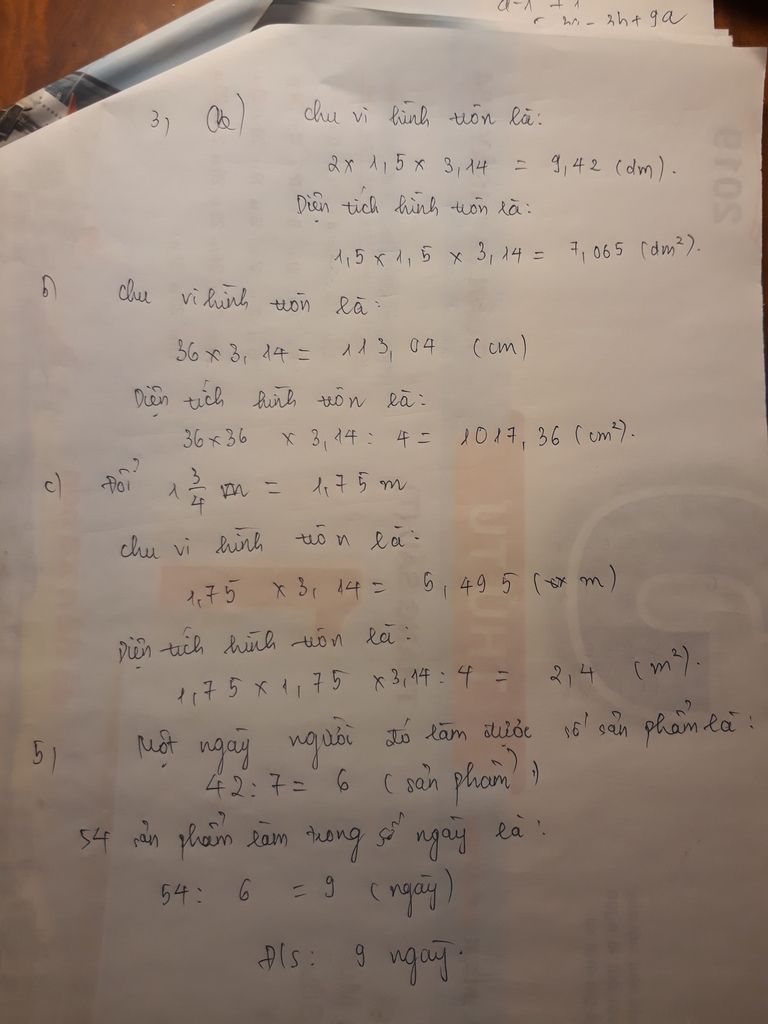 a-1 + 1
3n - 3b + 9a
3, a) chu vi hình tròn là:
2 x 1,5 x 3,14 = 9,42 (dm).
Diện tích hình tròn là:
1,5 x 1,5 x 3,14 = 7,065 (dm²).
b) chu vi hình tròn là:
36 x 3,14 = 113,04 (cm)
Diện tích hình tròn là:
36 x 36 x 3,14 : 4 = 1017,36 (cm²).
c) Đổi 1 3/4 m = 1,75 m
chu vi hình tròn là:
1,75 x 3,14 = 5,495 (m)
Diện tích hình tròn là:
1,75 x 1,75 x 3,14 : 4 = 2,4 (m²).
5, Một ngày người đó làm được số sản phẩm là:
42 : 7 = 6 (sản phẩm)
54 sản phẩm làm trong số ngày là:
54 : 6 = 9 (ngày)
Đ/s: 9 ngày.